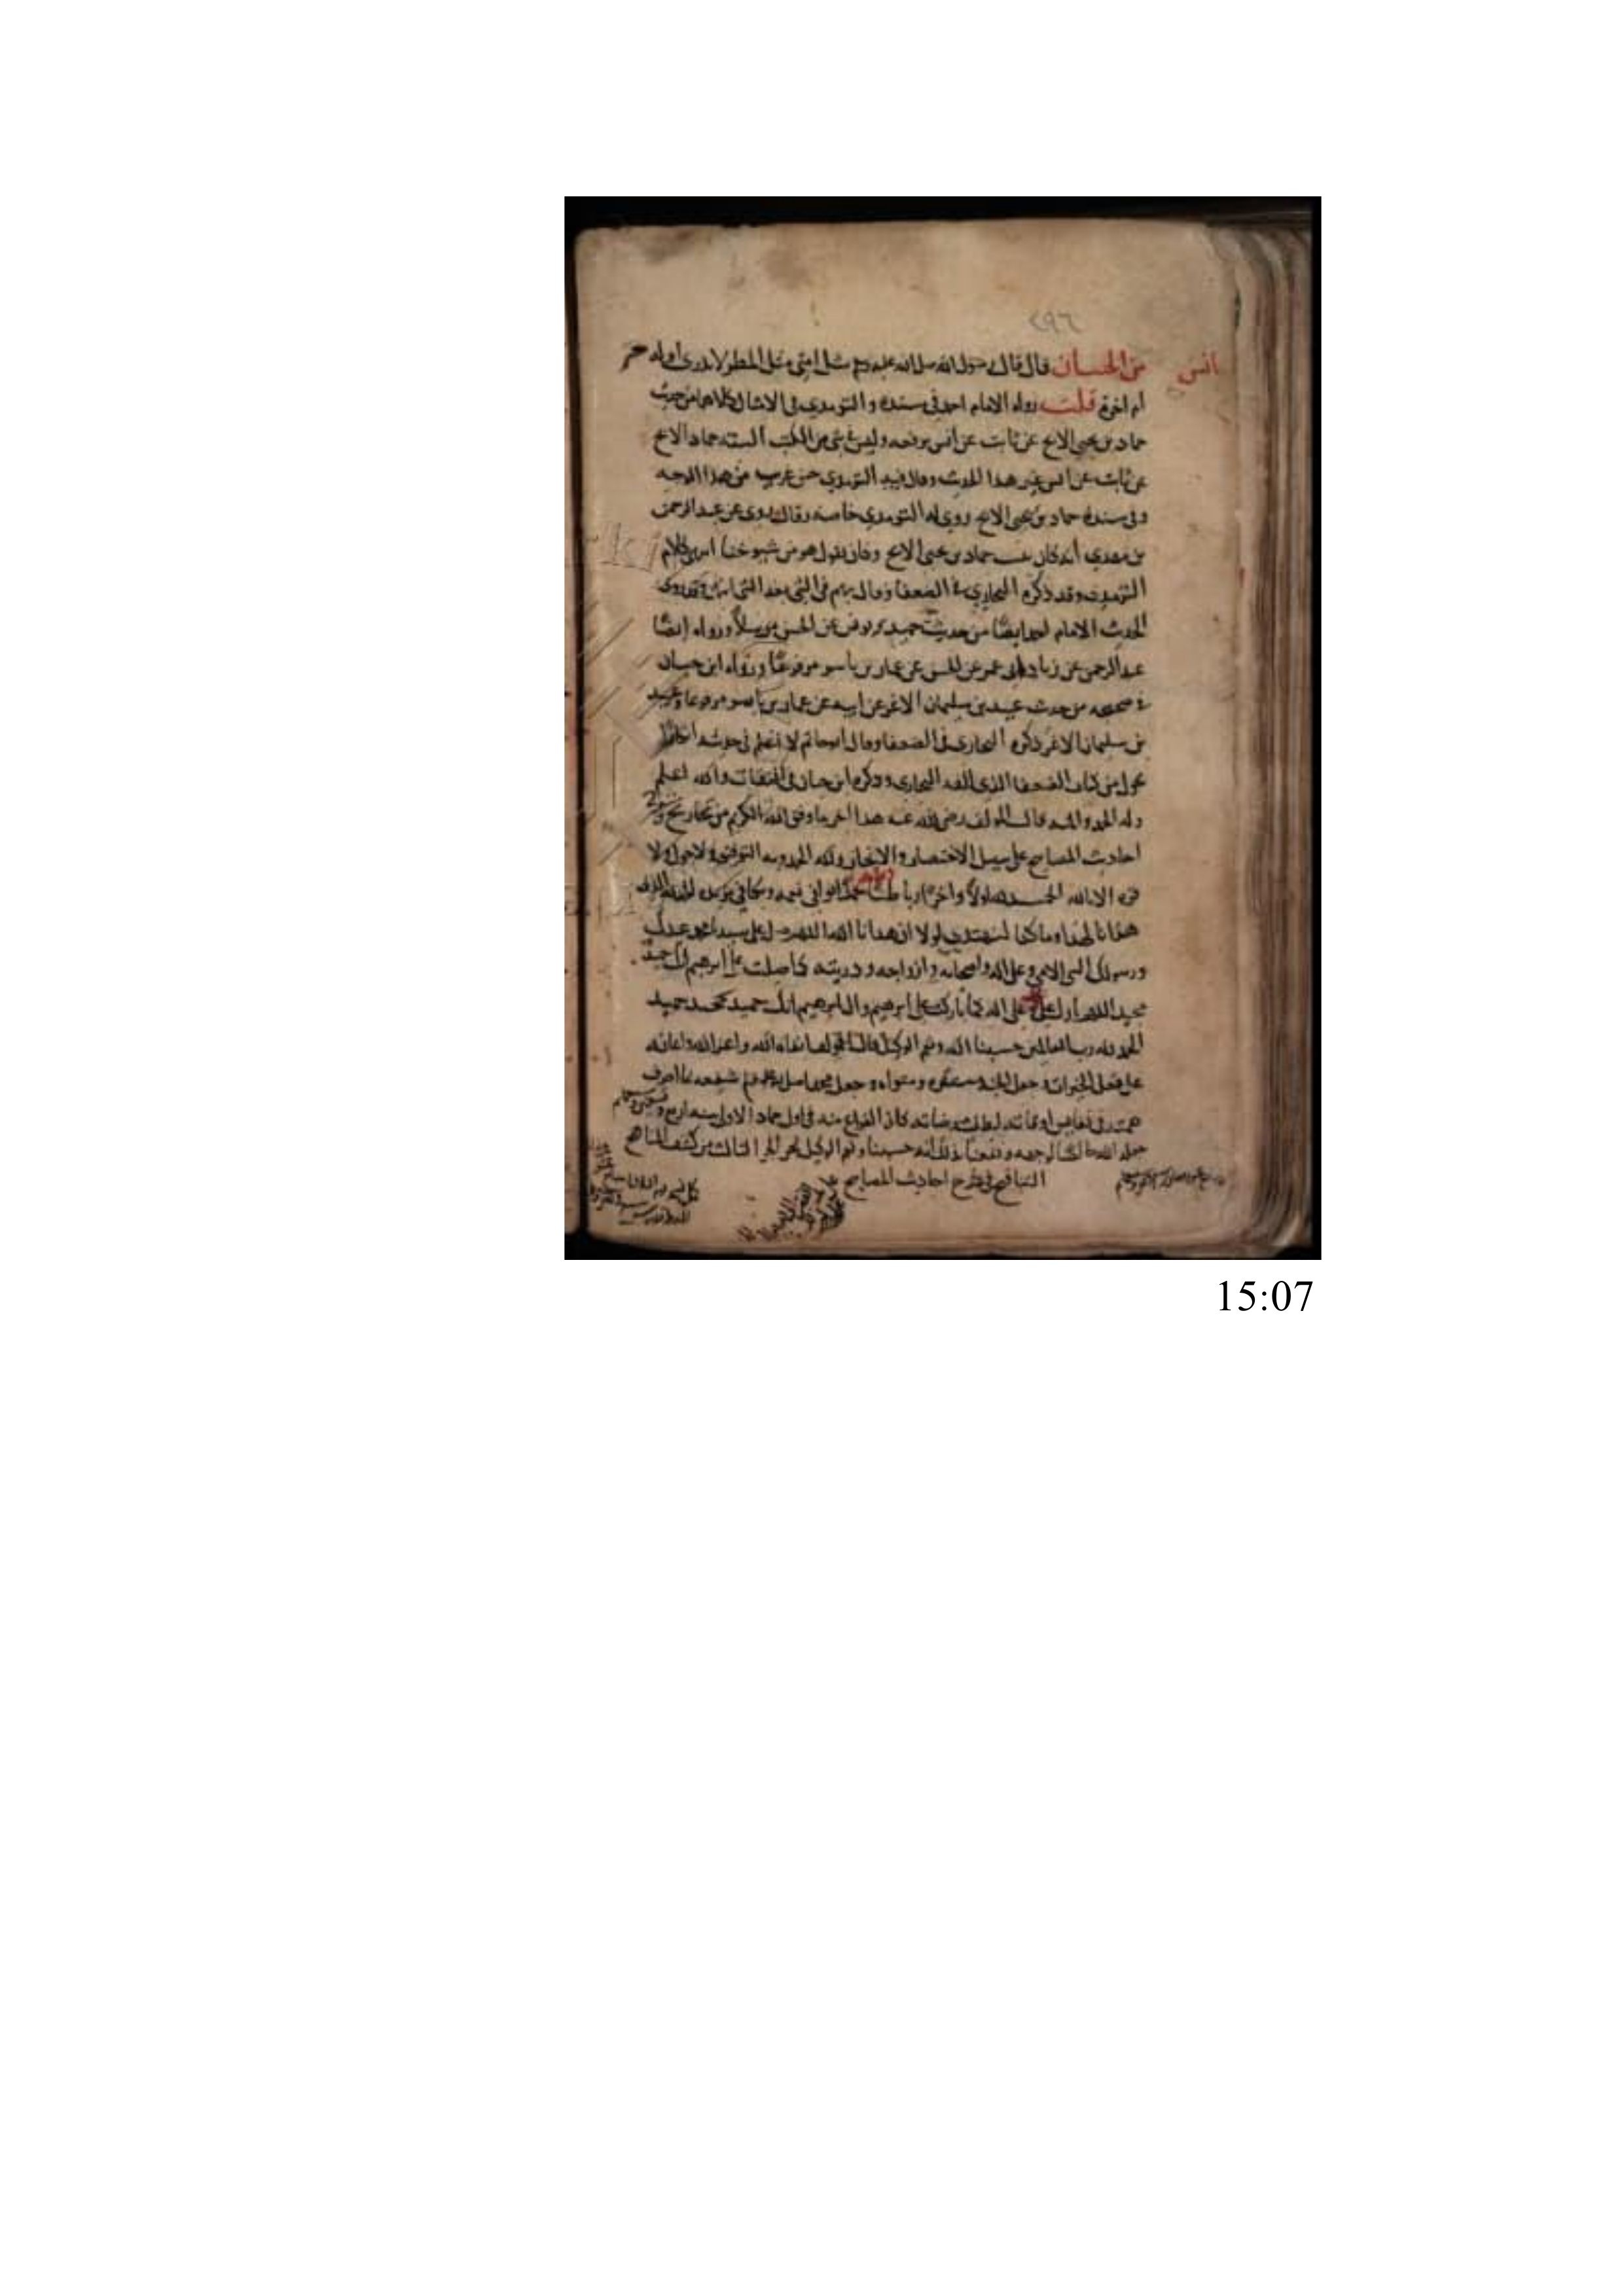 ٢٩٦
أنس
من الحسان قال قال رسول الله صلى الله عليه وسلم مثل امتي مثل المطر لا يدرى اوله خير
أم اخره قلت رواه الامام احمد في مسنده والترمذي في الامثال كلاهما من حديث
حماد بن يحيى الابح عن ثابت عن انس يرفعه وليس في شي من الكتب الستة حماد الابح
عن ثابت عن انس غير هذا الحديث وقال فيه الترمذي حسن غريب من هذا الوجه
وفي سنده حماد بن يحيى الابح روى له الترمذي خاصة وقال روى عن عبد الرحمن
بن مهدي انه كان حماد بن يحيى الابح وكان يقول هو من شيوخنا كلام
الترمذي وقد ذكره البخاري في الضعفا وقال يهم في الشي بعد الشي وقد روى
الحديث الامام احمد ايضا من حديث حميد عن الحسن مرسلا ورواه ايضا
عبد الرحمن عن زياد ابي عمر عن الحسن عن عمار بن ياسر مرفوعا ورواه ابن حبان
في صحيحه من حديث عبيد بن سليمان الاغر عن ابيه عن عمار بن ياسر مرفوعا وعبيد
بن سليمان الاغر ذكره البخاري في الضعفا وقال ابو حاتم لا اعلم في حديثه انكارا
يحول من كتاب الضعفا الذي الفه البخاري وذكره ابن حبان في الثقات والله اعلم
وله الحمد والمنة قال المولف رضي الله عنه هذا اخر ما وفق الله الكريم من تخاريج
احاديث المصابيح على سبيل الاختصار والايجاز ولله الحمد وبه التوفيق ولا حول ولا
قوة الا بالله الحمد لله اولا واخرا وباطنا حمدا يوافي نعمه ويكافي مزيده الحمد لله الذي
هدانا لهذا وما كنا لنهتدي لولا ان هدانا الله اللهم صل على سيدنا محمد عبدك
ورسولك النبي الامي وعلى اله واصحابه وازواجه وذريته كما صليت على ابرهيم انك حميد
مجيد اللهم بارك على وعلى اله كما باركت على ابرهيم وال ابرهيم انك حميد مجيد
الحمد لله رب العالمين حسبنا الله ونعم الوكيل قال مولفها عفاه الله واعز الله واعانه
على فعل الخيرات وجعل الجنة مستقره ومثواه وجعل محمدا صلى الله عليه وسلم شفيعه
همته في نفايس اوقاته كان الفراغ منه في اول جماد الاولى سنة اربع
جعله الله خالصا لوجهه ونفعنا بذلك انه حسبنا ونعم الوكيل الجز الثالث من كشف المناهج
التناقيح في تخرج احاديث المصابيح
15:07